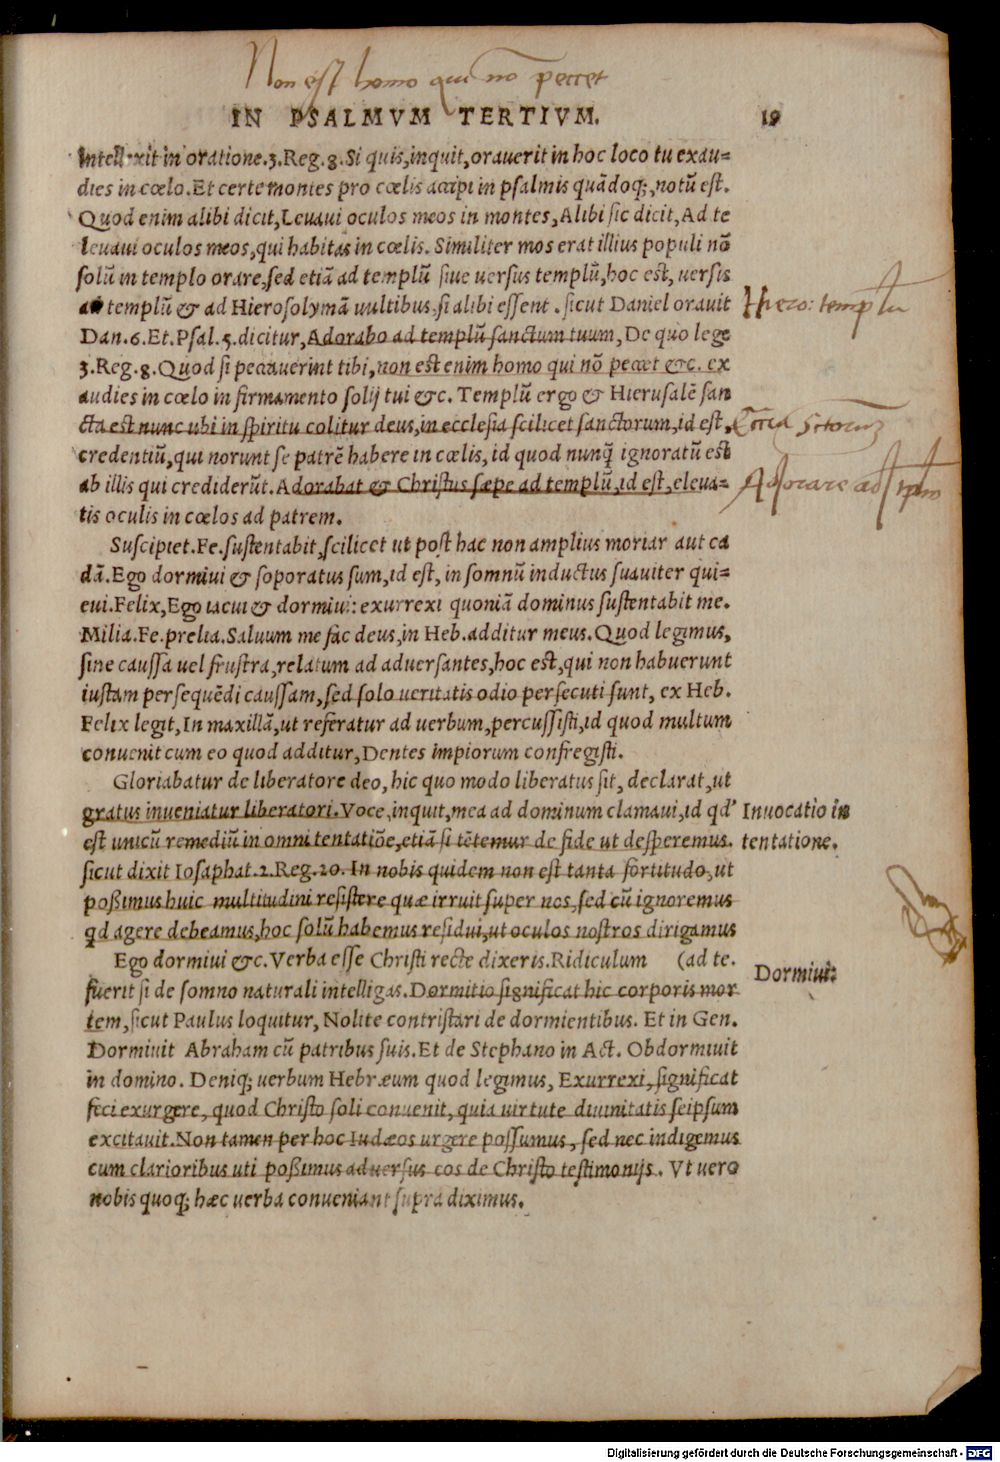 Non est homo qui nō peccet
IN PSALMVM TERTIVM. 19
Intellexit in oratione.3.Reg.8.Si quis,inquit,orauerit in hoc loco tu exau=
dies in cœlo.Et certe montes pro cœlis accipi in psalmis quādoq;,notū est.
Quod enim alibi dicit,Leuaui oculos meos in montes,Alibi sic dicit,Ad te
leuaui oculos meos,qui habitas in cœlis. Similiter mos erat illius populi nō
solū in templo orare,sed etiā ad templū siue uersus templū,hoc est, uersis
ad templū & ad Hierosolymā uultibus.si alibi essent . sicut Daniel orauit
Hiero: templū
Dan.6.Et.Psal.5.dicitur,Adorabo ad templū sanctum tuum, De quo lege
3.Reg.8.Quod si peccauerint tibi,non est enim homo qui nō peccet &c. ex
audies in cœlo in firmamento solij tui &c. Templū ergo & Hierusalē san
cta est nunc ubi in spiritu colitur deus,in ecclesia scilicet sanctorum,id est,
credentiū,qui norunt se patrē habere in cœlis, id quod nunq̄ ignoratū est
ab illis qui crediderūt. Adorabat & Christus sæpe ad templū,id est,eleua=
Adorare ad
tis oculis in cœlos ad patrem.
Suscipiet.Fe.sustentabit,scilicet ut post hac non amplius moriar aut ca
dā.Ego dormiui & soporatus sum,id est, in somnū inductus suauiter qui=
eui.Felix,Ego iacui & dormiui: exurrexi quoniā dominus sustentabit me.
Milia.Fe.prelia.Saluum me fac deus,in Heb.additur meus. Quod legimus,
sine caussa uel frustra,relatum ad aduersantes,hoc est,qui non habuerunt
iustam persequēdi caussam,sed solo ueritatis odio persecuti sunt, ex Heb.
Felix legit,In maxillā,ut referatur ad uerbum,percussisti,id quod multum
conuenit cum eo quod additur,Dentes impiorum confregisti.
Gloriabatur de liberatore deo, hic quo modo liberatus sit, declarat,ut
gratus inueniatur liberatori.Voce,inquit,mea ad dominum clamaui,id qd'
Inuocatio in
est unicū remediū in omni tentatiōe,etiā si tētemur de fide ut desperemus.
tentatione.
sicut dixit Iosaphat.2.Reg.20.In nobis quidem non est tanta fortitudo,ut
poßimus huic multitudini resistere quæ irruit super nos,sed cū ignoremus
qd agere debeamus,hoc solū habemus residui,ut oculos nostros dirigamus
Ego dormiui &c. Verba esse Christi recte dixeris.Ridiculum (ad te.
Dormiui:
fuerit si de somno naturali intelligas.Dormitio significat hic corporis mor
tem,sicut Paulus loquitur, Nolite contristari de dormientibus. Et in Gen.
Dormiuit Abraham cū patribus suis.Et de Stephano in Act. Obdormiuit
in domino. Deniq; uerbum Hebræum quod legimus, Exurrexi, significat
feci exurgere, quod Christo soli conuenit, quia uirtute diuinitatis seipsum
excitauit.Non tamen per hoc Iudæos urgere possumus, sed nec indigemus
cum clarioribus uti poßimus aduersus eos de Christo testimonijs. Vt uero
nobis quoq; hæc uerba conueniant supra diximus.
Digitalisierung gefördert durch die Deutsche Forschungsgemeinschaft - DFG